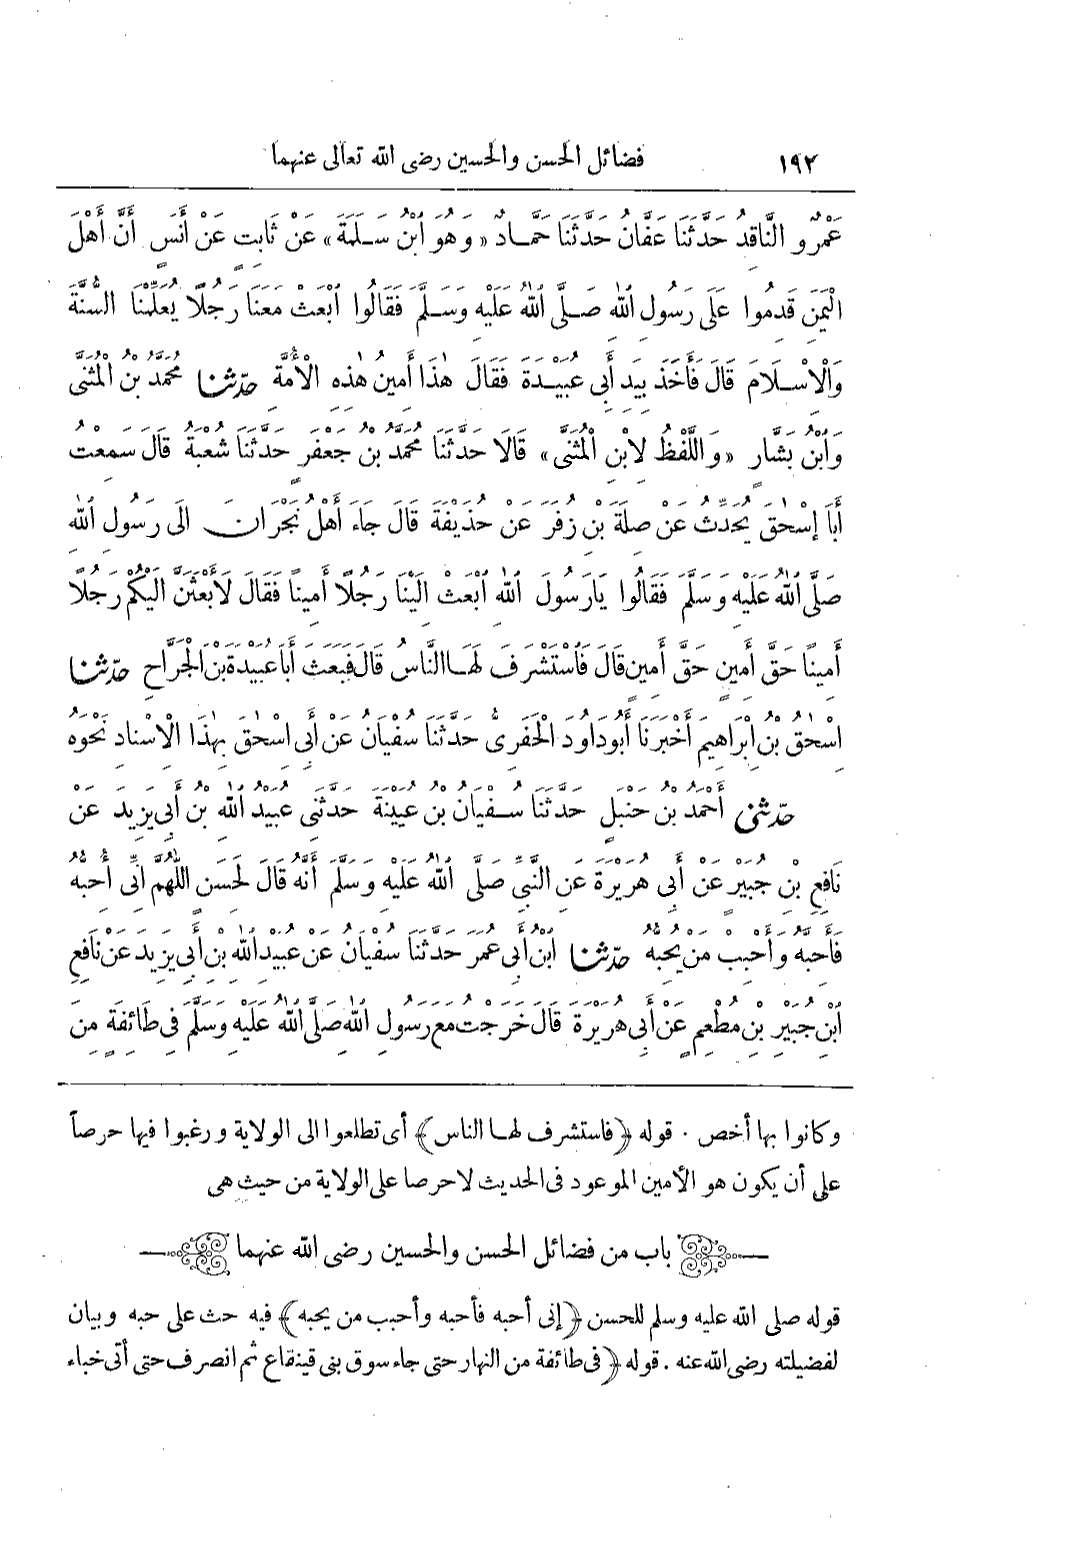 ١٩٢ فضائل الحسن والحسين رضى الله تعالى عنهما
عَمْرٌو النَّاقِدُ حَدَّثَنَا عَفَّانُ حَدَّثَنَا حَمَّادٌ «وَهُوَ ابْنُ سَلَمَةَ» عَنْ ثَابِتٍ عَنْ أَنَسٍ أَنَّ أَهْلَ
الْيَمَنِ قَدِمُوا عَلَى رَسُولِ اللهِ صَلَّى اللهُ عَلَيْهِ وَسَلَّمَ فَقَالُوا ابْعَثْ مَعَنَا رَجُلًا يُعَلِّمْنَا السُّنَّةَ
وَالْإِسْلَامَ قَالَ فَأَخَذَ بِيَدِ أَبِى عُبَيْدَةَ فَقَالَ هٰذَا أَمِينُ هٰذِهِ الْأُمَّةِ حَدَّثَنَا مُحَمَّدُ بْنُ الْمُثَنَّى
وَابْنُ بَشَّارٍ «وَاللَّفْظُ لِابْنِ الْمُثَنَّى» قَالَا حَدَّثَنَا مُحَمَّدُ بْنُ جَعْفَرٍ حَدَّثَنَا شُعْبَةُ قَالَ سَمِعْتُ
أَبَا إِسْحٰقَ يُحَدِّثُ عَنْ صِلَةَ بْنِ زُفَرَ عَنْ حُذَيْفَةَ قَالَ جَاءَ أَهْلُ نَجْرَانَ الَى رَسُولِ اللهِ
صَلَّى اللهُ عَلَيْهِ وَسَلَّمَ فَقَالُوا يَارَسُولَ اللهِ ابْعَثْ الَيْنَا رَجُلًا أَمِينًا فَقَالَ لَأَبْعَثَنَّ الَيْكُمْ رَجُلًا
أَمِينًا حَقَّ أَمِينٍ حَقَّ أَمِينٍ قَالَ فَاسْتَشْرَفَ لَهَا النَّاسُ قَالَ فَبَعَثَ أَبَا عُبَيْدَةَ بْنَ الْجَرَّاحِ حَدَّثَنَا
اسْحٰقُ بْنُ إِبْرَاهِيمَ أَخْبَرَنَا أَبُو دَاوُدَ الْحَفَرِىُّ حَدَّثَنَا سُفْيَانُ عَنْ أَبِى اسْحٰقَ بِهٰذَا الْاسْنَادِ نَحْوَهُ
حَدَّثَنِى أَحْمَدُ بْنُ حَنْبَلٍ حَدَّثَنَا سُفْيَانُ بْنُ عُيَيْنَةَ حَدَّثَنِى عُبَيْدُ اللهِ بْنُ أَبِى يَزِيدَ عَنْ
نَافِعِ بْنِ جُبَيْرٍ عَنْ أَبِى هُرَيْرَةَ عَنِ النَّبِىِّ صَلَّى اللهُ عَلَيْهِ وَسَلَّمَ أَنَّهُ قَالَ لِحَسَنٍ اللّٰهُمَّ إِنِّى أُحِبُّهُ
فَأَحِبَّهُ وَأَحْبِبْ مَنْ يُحِبُّهُ حَدَّثَنَا ابْنُ أَبِى عُمَرَ حَدَّثَنَا سُفْيَانُ عَنْ عُبَيْدِ اللهِ بْنِ أَبِى يَزِيدَ عَنْ نَافِعِ
ابْنِ جُبَيْرِ بْنِ مُطْعِمٍ عَنْ أَبِى هُرَيْرَةَ قَالَ خَرَجْتُ مَعَ رَسُولِ اللهِ صَلَّى اللهُ عَلَيْهِ وَسَلَّمَ فِى طَائِفَةٍ مِنَ
وكانوا بها أخص . قوله ﴿فاستشرف لها الناس﴾ أى تطلعوا الى الولاية ورغبوا فيها حرصاً
على أن يكون هو الأمين الموعود فى الحديث لاحرصا على الولاية من حيث هى
باب من فضائل الحسن والحسين رضى الله عنهما
قوله صلى الله عليه وسلم للحسن ﴿إنى أحبه فأحبه وأحبب من يحبه﴾ فيه حث على حبه وبيان
لفضيلته رضى الله عنه . قوله ﴿فى طائفة من النهار حتى جاء سوق بنى قينقاع ثم انصرف حتى أتى خباء